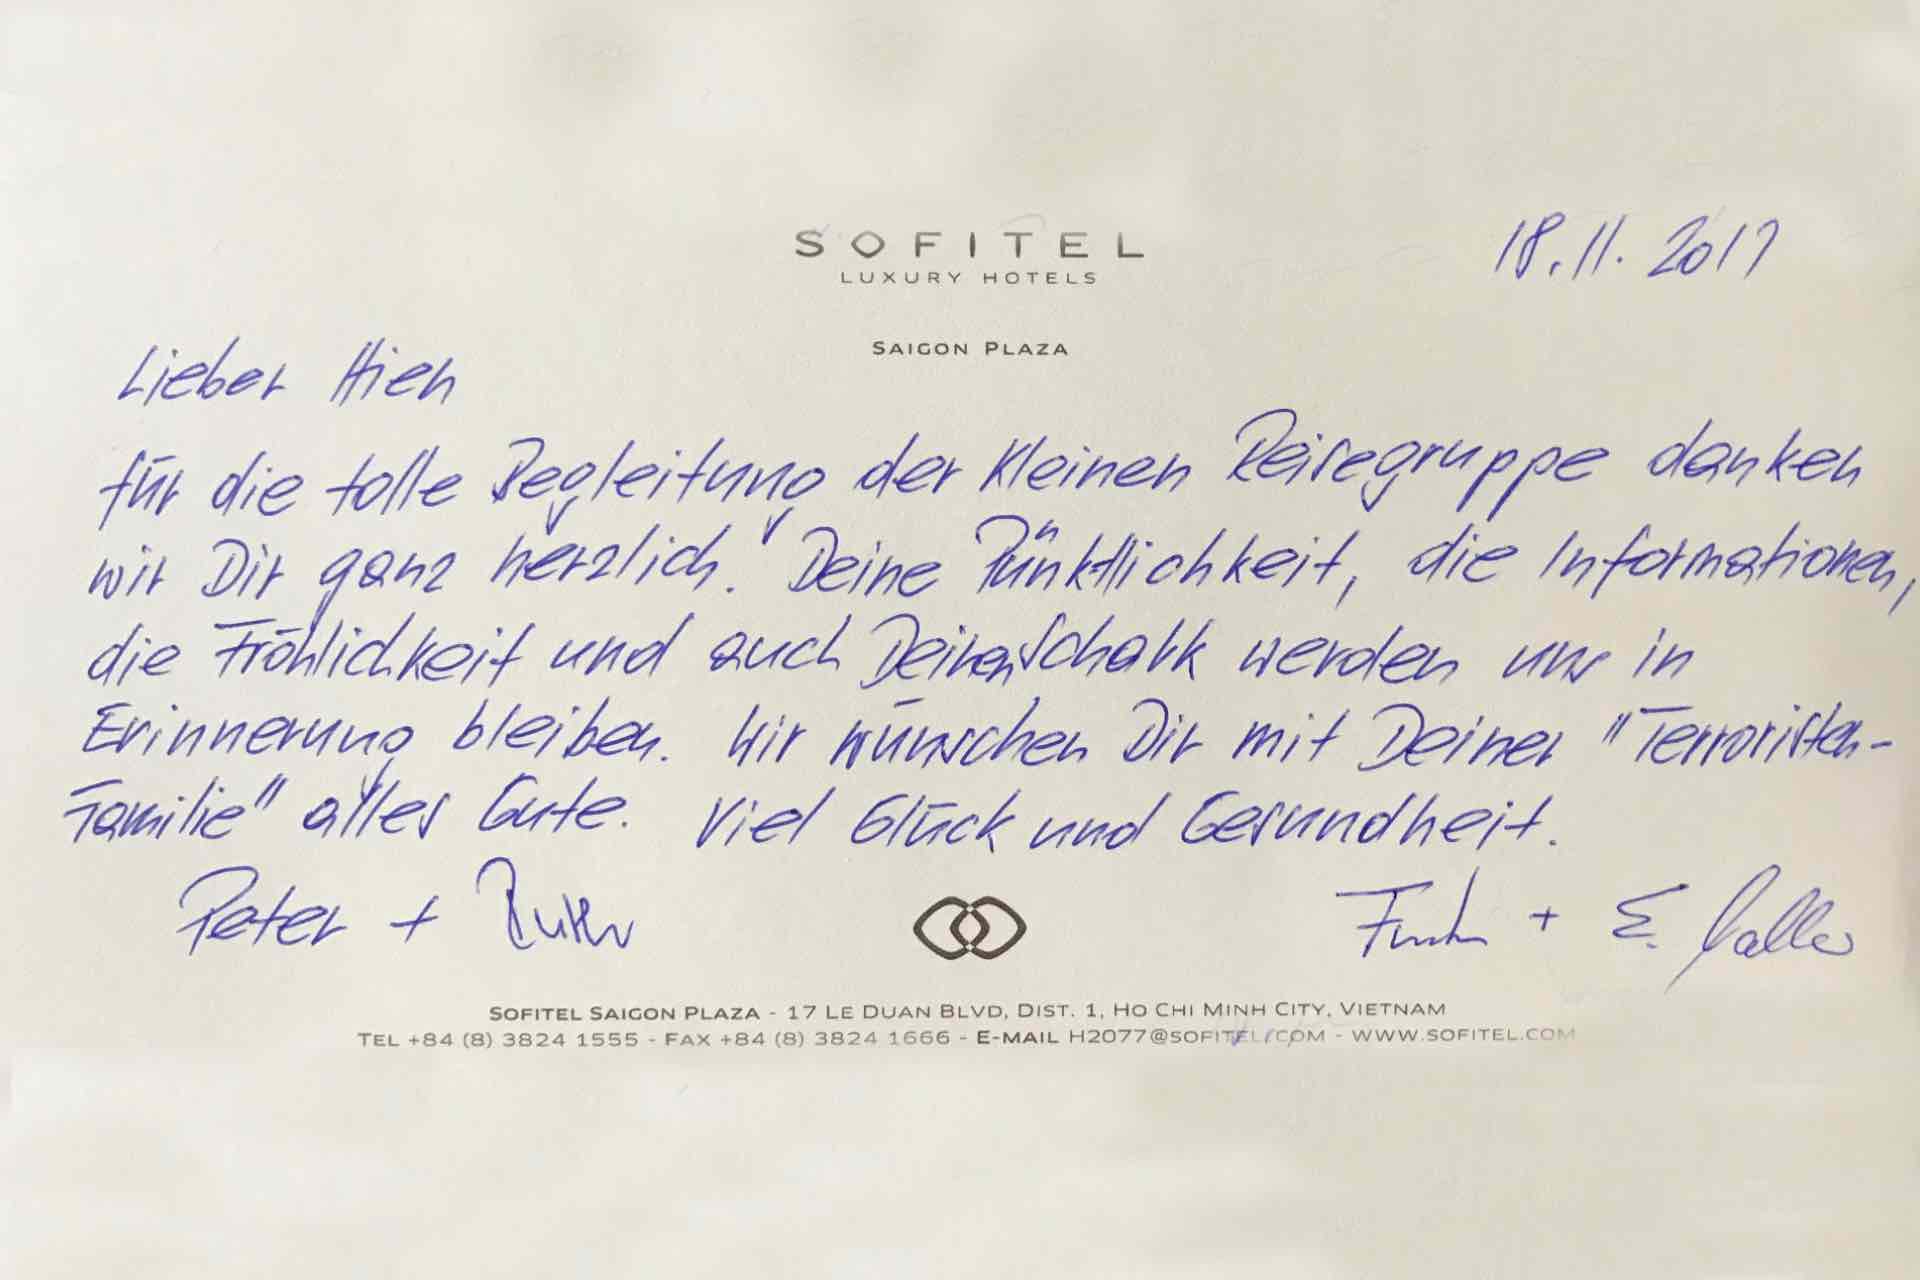 SOFITEL
LUXURY HOTELS
18.11.2017
SAIGON PLAZA
Lieber Hien
für die tolle Begleitung der kleinen Reisegruppe danken
wir Dir ganz herzlich. Deine Pünktlichkeit, die Informationen,
die Fröhlichkeit und auch Deinen Schalk werden uns in
Erinnerung bleiben. Wir wünschen Dir mit Deiner "Terroristen-
Familie" alles Gute. Viel Glück und Gesundheit.
Peter + Ruth + E.
SOFITEL SAIGON PLAZA - 17 LE DUAN BLVD, DIST. 1, HO CHI MINH CITY, VIETNAM
TEL +84 (8) 3824 1555 - FAX +84 (8) 3824 1666 - E-MAIL H2077@SOFITEL.COM - WWW.SOFITEL.COM